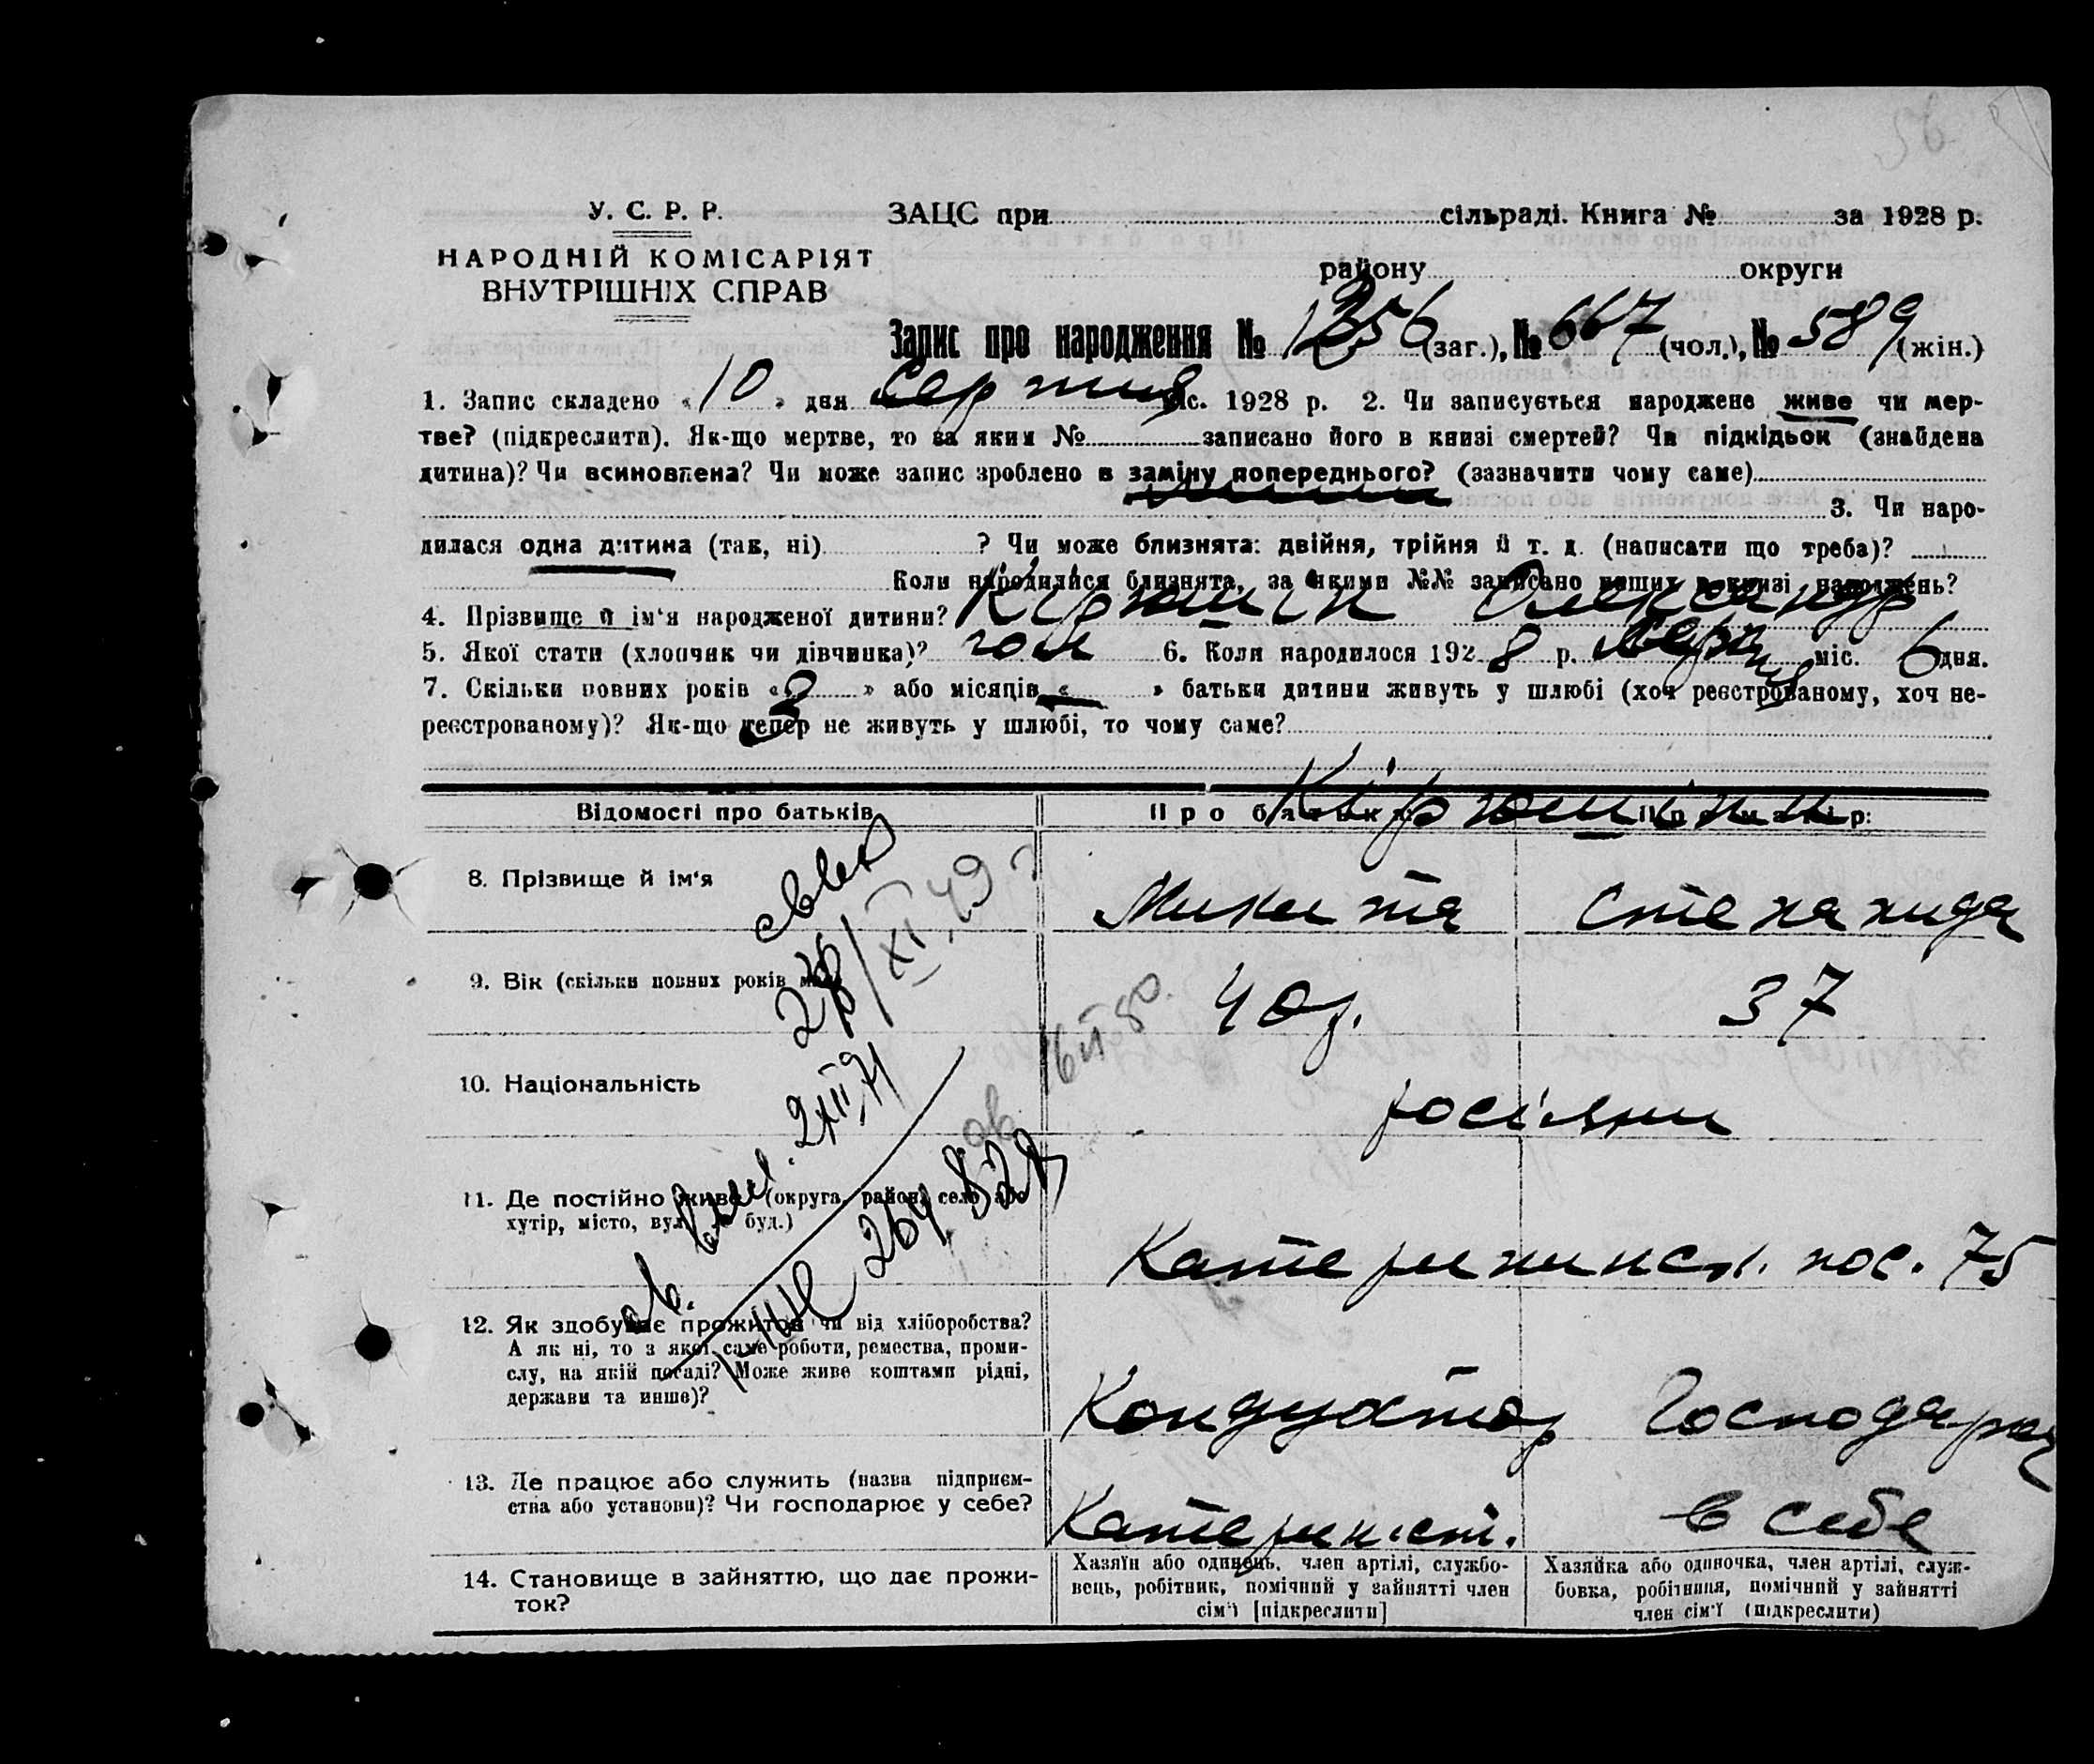 56
У. С. Р. Р.
НАРОДНІЙ КОМІСАРІЯТ
ВНУТРІШНІХ СПРАВ
ЗАЦС при сільраді. Книга № за 1928 р.
району округи
Запис про народження № 1256 (заг.), № 667 (чол.), № 589 (жін.)
1. Запис складено «10» дня Серпня міс. 1928 р. 2. Чи записується народжене живе чи мер-
тве? (підкреслити). Як-що мертве, то за яким № записано його в книзі смертей? Чи підкідьок (знайдена
дитина)? Чи всиновлена? Чи може запис зроблено в заміну попереднього? (зазначити чому саме)
3. Чи наро-
дилася одна дитина (так, ні) ? Чи може близнята: двійня, трійня й т. д. (написати що треба)?
Коли народилися близнята, за якими №№ записано инших в книзі народжень?
4. Прізвище й ім'я народженої дитини? Кірюшин Олександр
5. Якої стати (хлопчик чи дівчинка)? чол 6. Коли народилося 1928 р. Серпня міс. 6 дня.
7. Скільки повних років « » або місяців « — » батьки дитини живуть у шлюбі (хоч реєстрованому, хоч не-
реєстрованому)? Як-що тепер не живуть у шлюбі, то чому саме?
Відомості про батьків Про батька: Про матір:
Кірюшини
8. Прізвище й ім'я Микита Степанида
9. Вік (скільки повних років має) 40 р. 37
10. Національність росіяни
11. Де постійно живе (округа, район, село або
хутір, місто, вул. буд.)
Катерининск. пос. 75
12. Як здобуває прожиток чи від хліборобства?
А як ні, то з якої саме роботи, ремества, проми-
слу, на якій посаді? Може живе коштами рідні,
держави та инше)?
Кондуктор Господарка
13. Де працює або служить (назва підприєм-
ства або установи)? Чи господарює у себе?
Катерин. ст. в себе
14. Становище в зайняттю, що дає прожи-
ток?
Хазяїн або одинець, член артілі, службо-
вець, робітник, помічний у зайнятті член
сім'ї [підкреслити]
Хазяйка або одиночка, член артілі, служ-
бовка, робітниця, помічний у зайнятті
член сім'ї (підкреслити)